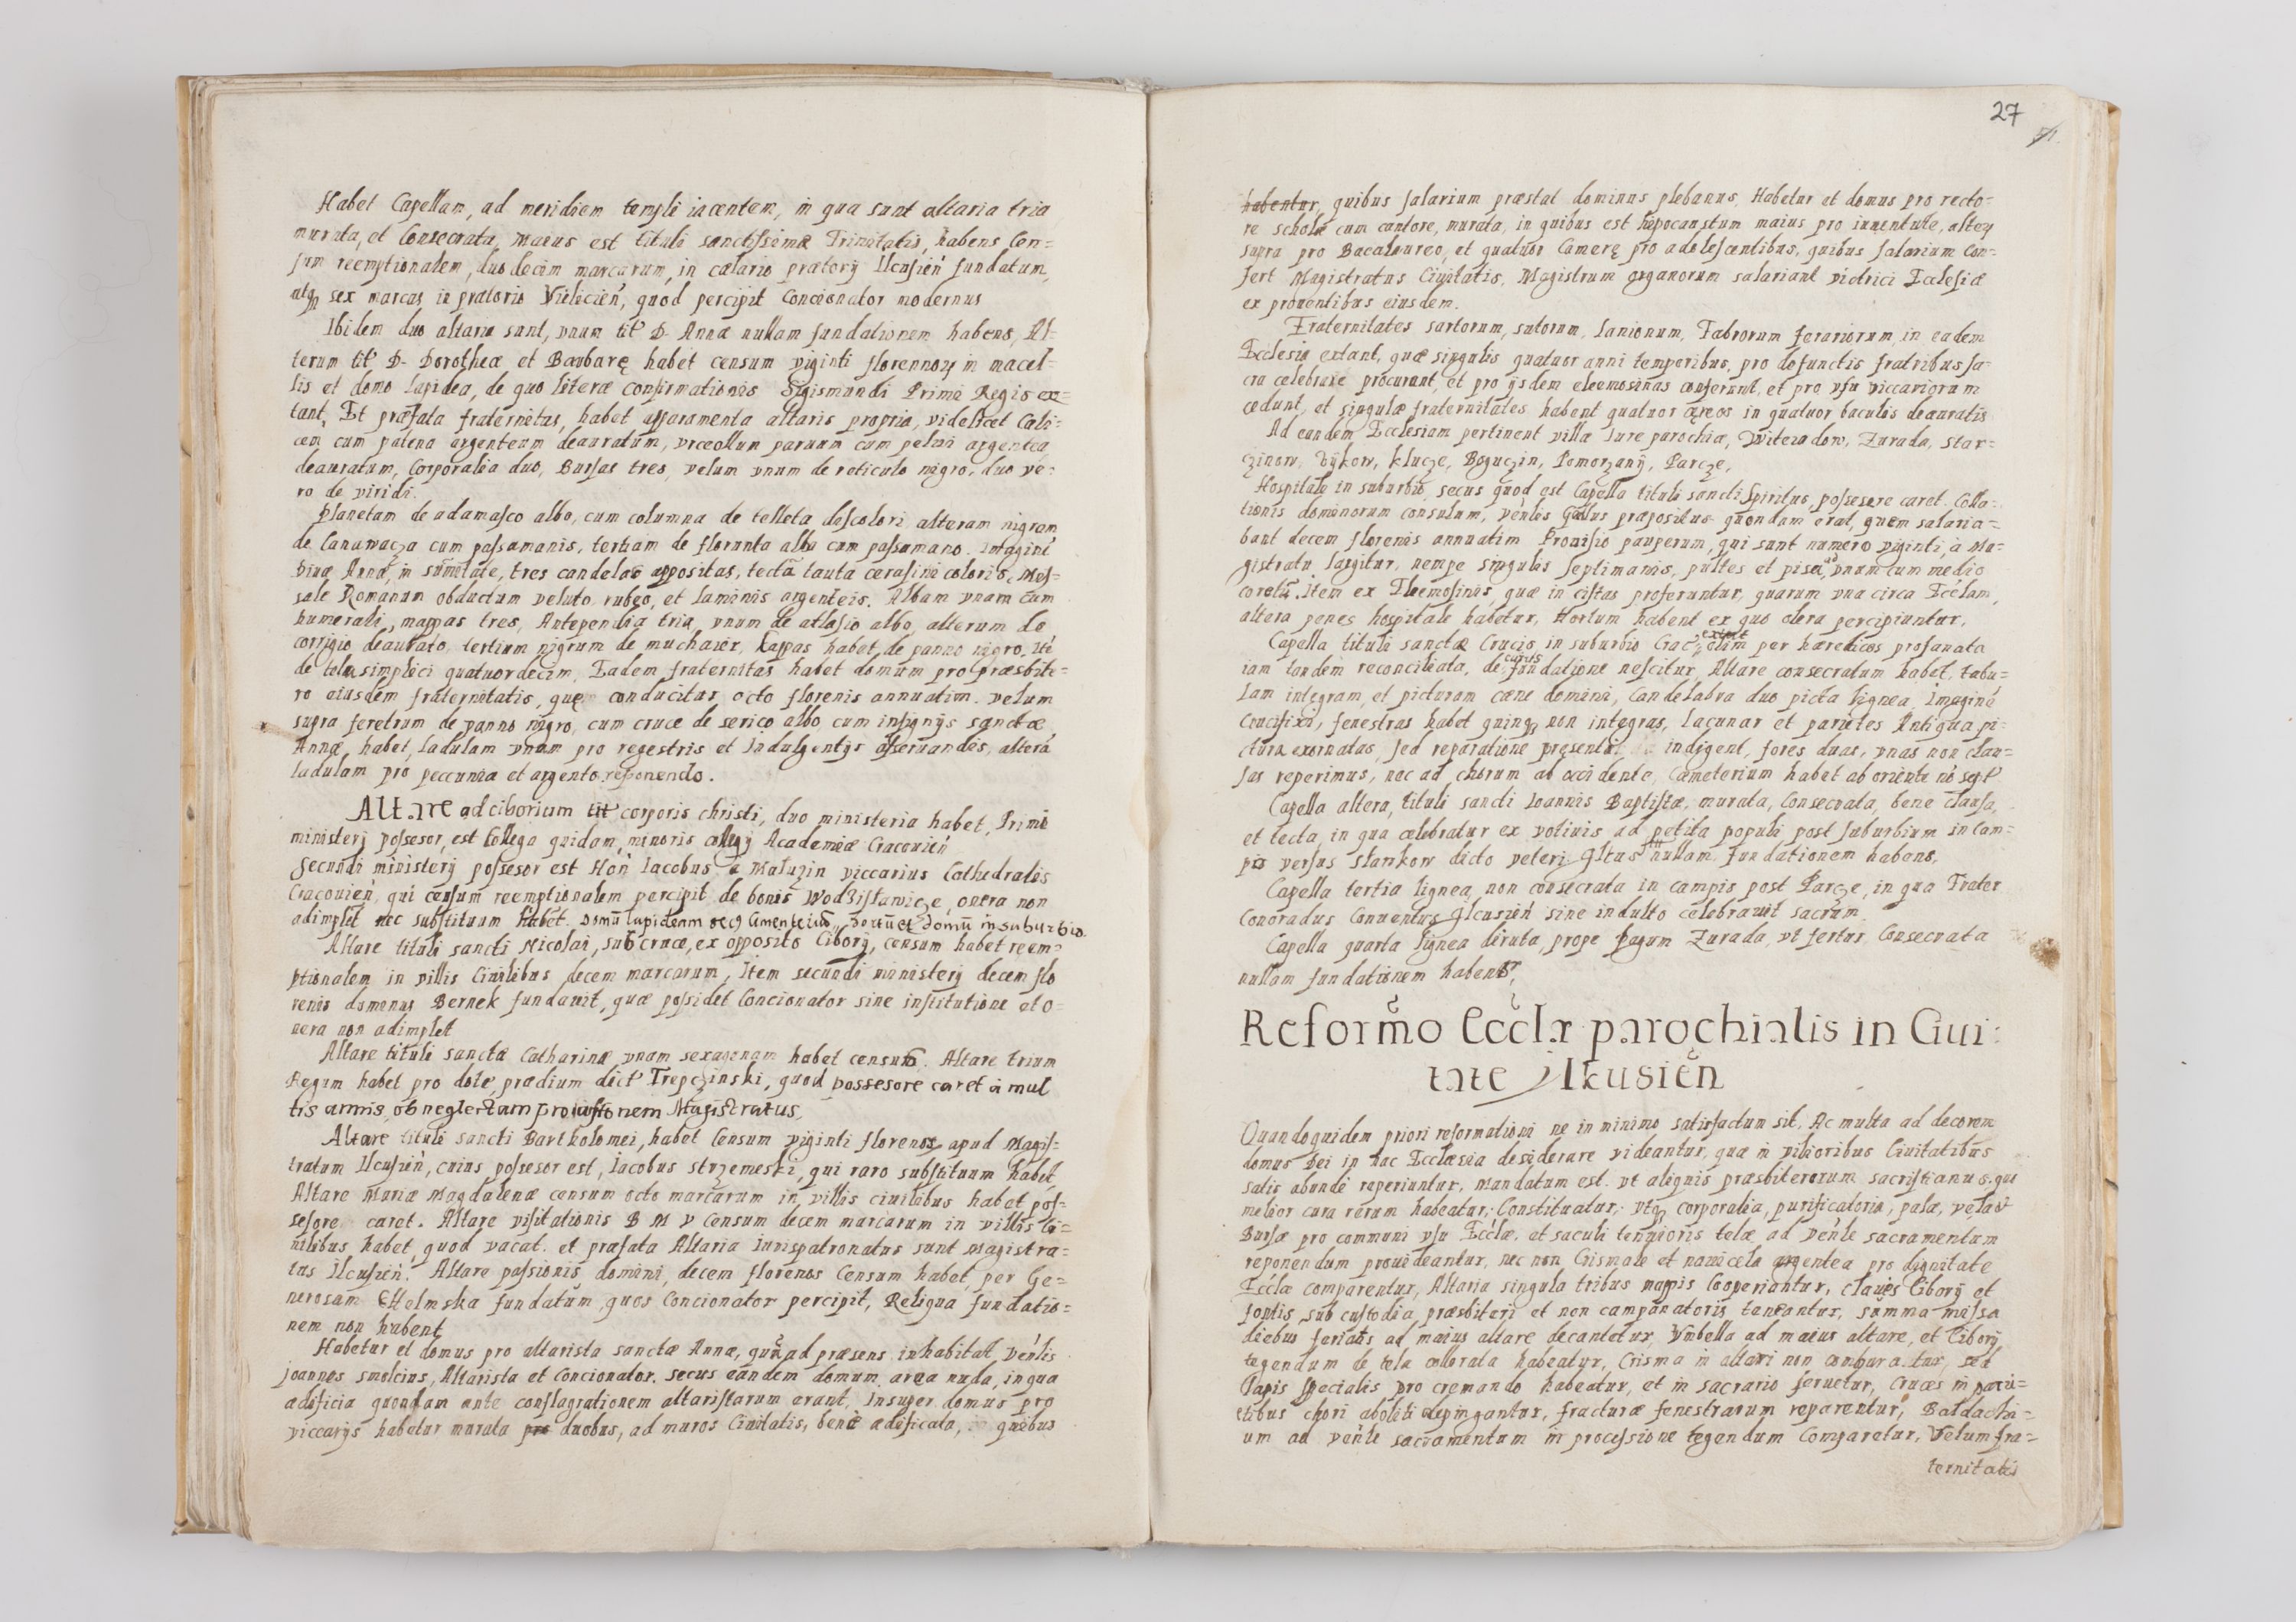 Habet Capellam, ad meridiem templi iacentem, in qua sunt altaria tria
murata, et Consecrata, Maius est tituli sanctissimæ Trinitatis, habens Cen=
sum reemptionalem, duodecim marcarum, in cælario prætorÿ Ilcusień fundatum,
atqȝ sex marcas in prætorio Vielicień, quod percipit Concionator modernus
Ibidem duo altaria sunt, vnum tit' D. Annæ nullam fundationem habens, Al=
terum tit' D. Dorotheæ et Barbarę habet censum viginti florenorȝ in macel=
lis et domo lapidea, de quo literæ confirmationis Sigismundi Primi Regis ex=
tant, Et præfata fraternitas, habet apparamenta altaris propria, videlicet Cali=
cem cum patena argenteum deauratum, vrceollum paruum cum pelui argentea,
deauratum, Corporalia duo, Bursas tres, velum vnum de reticulo nigro, duo ve=
ro de viridi.
Planetam de adamasco albo, cum columna de telleta discolori alteram nigram
de Canawacza cum passamanis, tertiam de florunta alba cum passamano. Imagini
Diuæ Annæ, in sumitate, tres candelas appositas, tecta lauta cerasini coloris, Mis=
sale Romanum obductum veluto rubeo, et laminis argenteis. Albam vnam cum
humerali, mappas tres, Antependia tria, vnum de atlasio albo, alterum de
corrigio deaurato, tertium nigrum de muchaier, Cappas habet de panno nigro, ite
de tela simplici quatuordecim, Eadem fraternitas habet domum pro præsbite=
ro eiusdem fraternitatis, quę conducitur octo florenis annuatim. velum
supra feretrum de panno nigro, cum cruce de serico albo, cum insignÿs sanctæ
Annæ, habet, ladulam vnam pro regestris et indulgentÿs asseruandis, altera
ladulam pro peccunia et argento reponendo.
Altare ad ciborium tit' corporis christi, duo ministeria habet, Primi
ministerÿ possesor, est Collega quidam, minoris collegÿ Academiæ Cracouień
Secundi ministerÿ possesor est Hoń Iacobus a Maluzin viccarius Cathedralis
Cracouień, qui censum reemptionalem percipit de bonis Wodzisławicze, onera non
adimplet nec substituum habet. Domū lapideam
Altare tituli sancti Nicolai, sub cruce, ex opposito Ciborÿ, censum habet reem=
ptionalem in villis Ciuilibus decem marcarum, Item secundi ministerÿ decem flo
renis dominus Bernek fundauit, quæ possidet Concionator sine institutione et o=
nera non adimplet
Altare tituli sanctæ Catharinæ vnam sexagenam habet censum. Altare trium
Regum habet pro dote, prædium dict' Trepczinski, quod possesore caret à mul
tis annis, ob neglectam prouisionem Magistratus,
Altare tituli sancti Bartholomei, habet Censum viginti florenorȝ apud Magis=
tratum Ilcusień, cuius possesor est, Iacobus Strzemeski, qui raro substituum habet,
Altare Mariæ Magdalenæ censum octo marcarum in villis ciuilibus habet pos=
sesore caret. Altare visitationis B M V Censum decem marcarum in villis ci=
uilibus habet, quod vacat. et præfata Altaria iurispatronatus sunt Magistra=
tus Ilcusień. Altare passionis domini, decem florenos Censum habet, per Ge=
nerosam Chelmska fundatum, quos Concionator percipit, Reliqua fundatio=
nem non habent
Habetur et domus pro altarista sanctæ Annæ, quā ad præsens inhabitat Veńlis
joannes smolcius, Altarista et Concionator. secus eandem domum area nuda, in qua
ædificia quondam ante conflagrationem altaristarum erant, Insuper domus pro
viccarÿs habetur murata pro duobus, ad muros Ciuitatis, bene ædificata, quibus
27
habentur, quibus salarium præstat dominus plebanus, Habetur et domus pro recto=
re scholæ cum cantore, murata, in quibus est hipocaustum maius pro iuuentute, alterȝ
supra pro Bacalaureo, et quatuor Camerę pro adolescentibus, quibus salarium Con=
fert Magistratus Ciuitatis, Magistrum organorum salariant victrici Ecclesiæ
ex prouentibus eiusdem.
Fraternitates sartorum, sutorum, lanionum, Fabrorum ferariorum in eadem
Ecclesia extant, quæ singulis quatuor anni temporibus, pro defunctis fratribus sa=
cra celebrare procurant, et pro ÿsdem eleemosinas conferunt, et pro vsu viccariorum
cedunt, et singulæ fraternitates habent quatuor cereos in quatuor baculis deauratis
Ad eandem Ecclesiam pertinent villæ iure parochiæ, Witeradow, Zurada, Star=
czinow, Żÿkow, Klucze, Boguczin, Pomorzanÿ, Parcze,
Hospitale in suburbio, secus quod est Capella tituli sancti Spiritus, possesore caret. Colla=
tionis dominorum consulum, veńlis Gallus præpositus quondam erat, quem salaria=
bant decem florenis annuatim Prouisio pauperum, qui sunt numero viginti, à Ma=
gistratu largitur, nempe singulis septimanis, pultes et pisa, vnum cum medio
coretū. Item ex Eleemosinis, quæ in cistas proferuntur, quarum vna circa Ecclam,
altera penes hospitale habetur, Hortum habent ex quo olera percipiuntur,
Capella tituli sanctæ Crucis in suburbio Crac: olim per hæreticos profanata
iam tandem reconciliata, de cuius fundatione nescitur, Altare consecratum habet, tabu=
lam integram, et picturam cæne domini, Candelabra duo picta lignea, Imaginē
Crucifixi, fenestras habet quinqȝ non integras, lacunar et parietes Antiqua pi=
ctura exornatas, sed reparatione presenti indigent, fores duas, vnas non clau=
sas reperimus, nec ad chorum ab occidente, Cæmeterium habet ab oriente nō sept'
Capella altera, tituli sancti Ioannis Baptistæ, murata, Consecrata, bene clausa,
et tecta, in qua celebratur ex votiuis ad petita populi post suburbium in Cam=
pis versus Starikow dicto veteri Ilcus nullam fundationem habens,
Capella tertia lignea, non consecrata in campis post Parcze, in qua Frater
Conoradus Conuentus Ilcusień sine indulto celebrauit sacrum.
Capella quarta lignea diruta, prope pagum Zurada, vt fertur Consecrata
nullam fundationem habens,
Reformo Ecclæ parochialis in Ciui:
tate Ilkusień
Quandoquidem priori reformationi ne in minimo satisfactum sit, Ac multa ad decorem
domus Dei in hac Ecclæsia desiderare videantur, quæ in vilioribus Ciuitatibus
satis abunde reperiuntur, mandatum est. vt aliquis præsbiterorum sacristianus, quo
melior cura rerum habeatur, Constituatur, vtqȝ corporalia, purificatoria, palæ, vela et
Bursæ pro communi vsu Ecclæ, et saculi tenuioris telæ ad veńle sacramentum
reponendum prouideantur, nec non Crismale et nauicela argentea pro dignitate
Ecclæ comparentur, Altaria singula tribus mappis Cooperiantur, claues Ciborÿ et
fontis sub custodia præsbiterj et non campanatoris teneantur, summa missa
diebus feriatis ad maius altare decantetur, Vmbella ad maius altare, et Ciborÿ
tegendum de tela collorata habeatur, Crisma in altari non comburatur, sed
Lapis specialis pro cremando habeatur, et in sacrario seruetur, Cruces in parie=
tibus chori aboliti depingantur, fracturæ fenestrarum reparentur, Baldachi=
um ad veńle sacramentum in processione tegendum Comparetur, Velum fra=
ternitatis